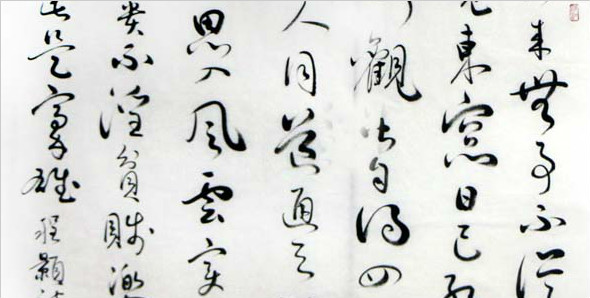 来無事不從
東窗日已紅
觀皆自得四
人同道通天
思入風雲变
貴不淫貧賤樂
此是豪雄程顥